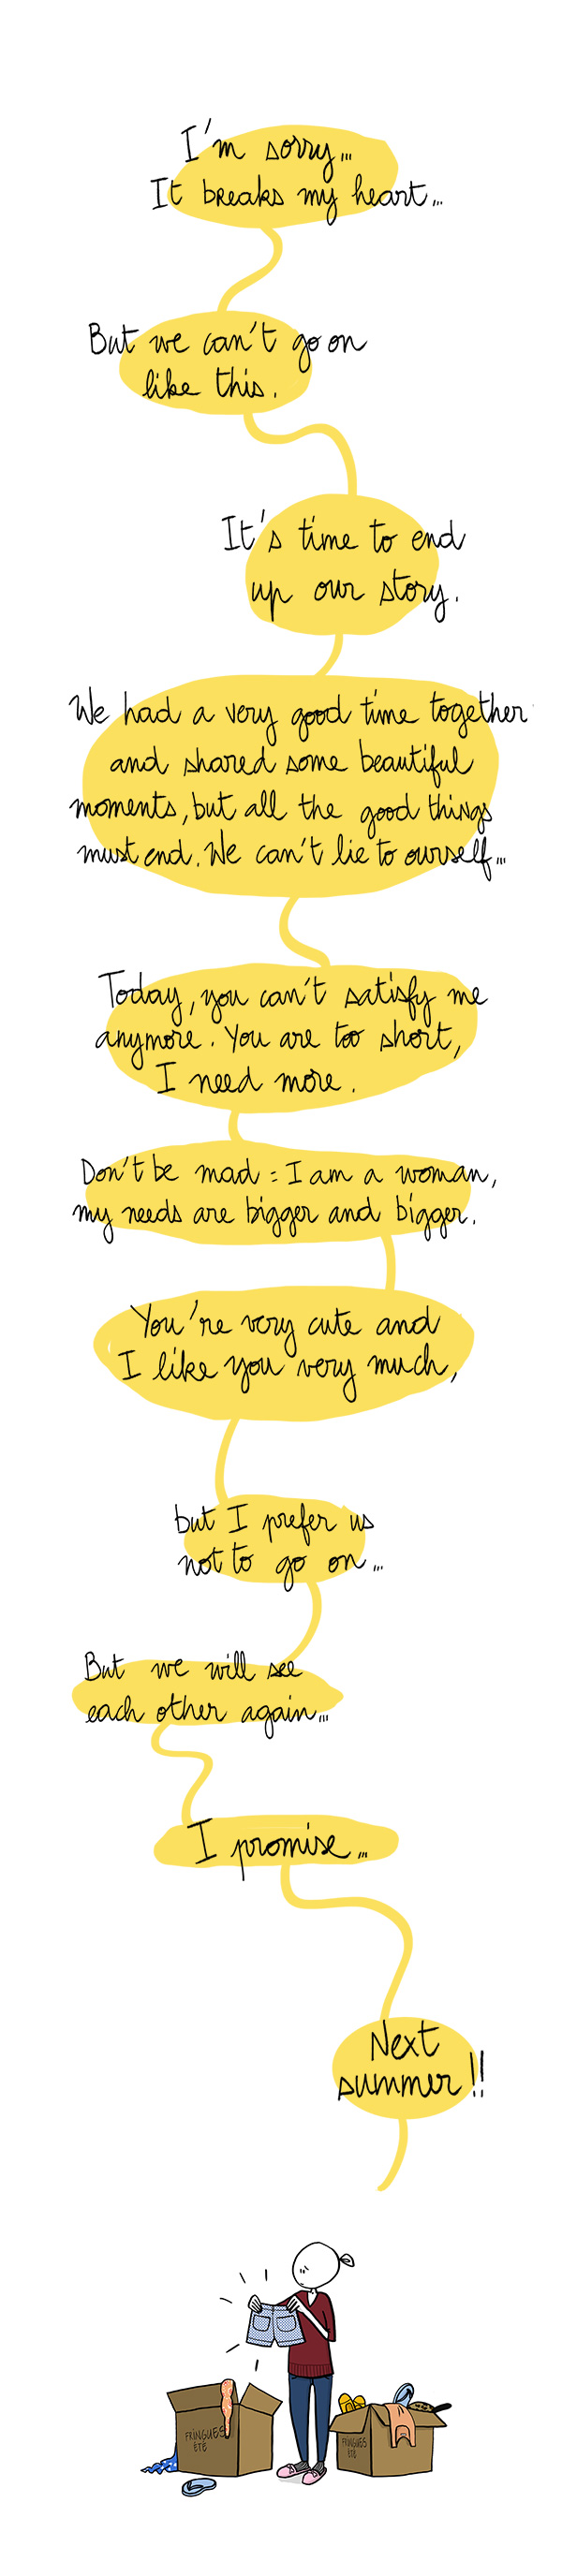 I'm sorry...
It breaks my heart...
But we can't go on
like this.
It's time to end
up our story.
We had a very good time together
and shared some beautiful
moments, but all the good things
must end. We can't lie to ourself...
Today, you can't satisfy me
anymore. You are too short,
I need more.
Don't be mad : I am a woman,
my needs are bigger and bigger.
You're very cute and
I like you very much,
but I prefer us
not to go on...
But we will see
each other again...
I promise...
Next
summer!!
FRINGUES
ÉTÉ
FRINGUES
ÉTÉ